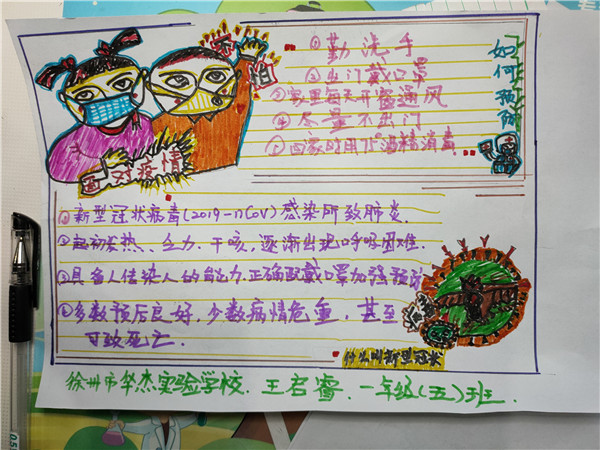 不怕
①勤洗手
②出门戴口罩
③家里每天开窗通风
④尽量不出门
⑤回家时用75°酒精消毒
如何预防
面对疫情
①新型冠状病毒(2019-nCoV)感染所致肺炎.
②起初发热、乏力、干咳,逐渐出现呼吸困难.
③具备人传染人的能力.正确配戴口罩加强预防
④多数预后良好,少数病情危重,甚至
可致死亡.
什么叫新型冠状
徐州市华杰实验学校.王启睿.一年级(五)班.
0.5